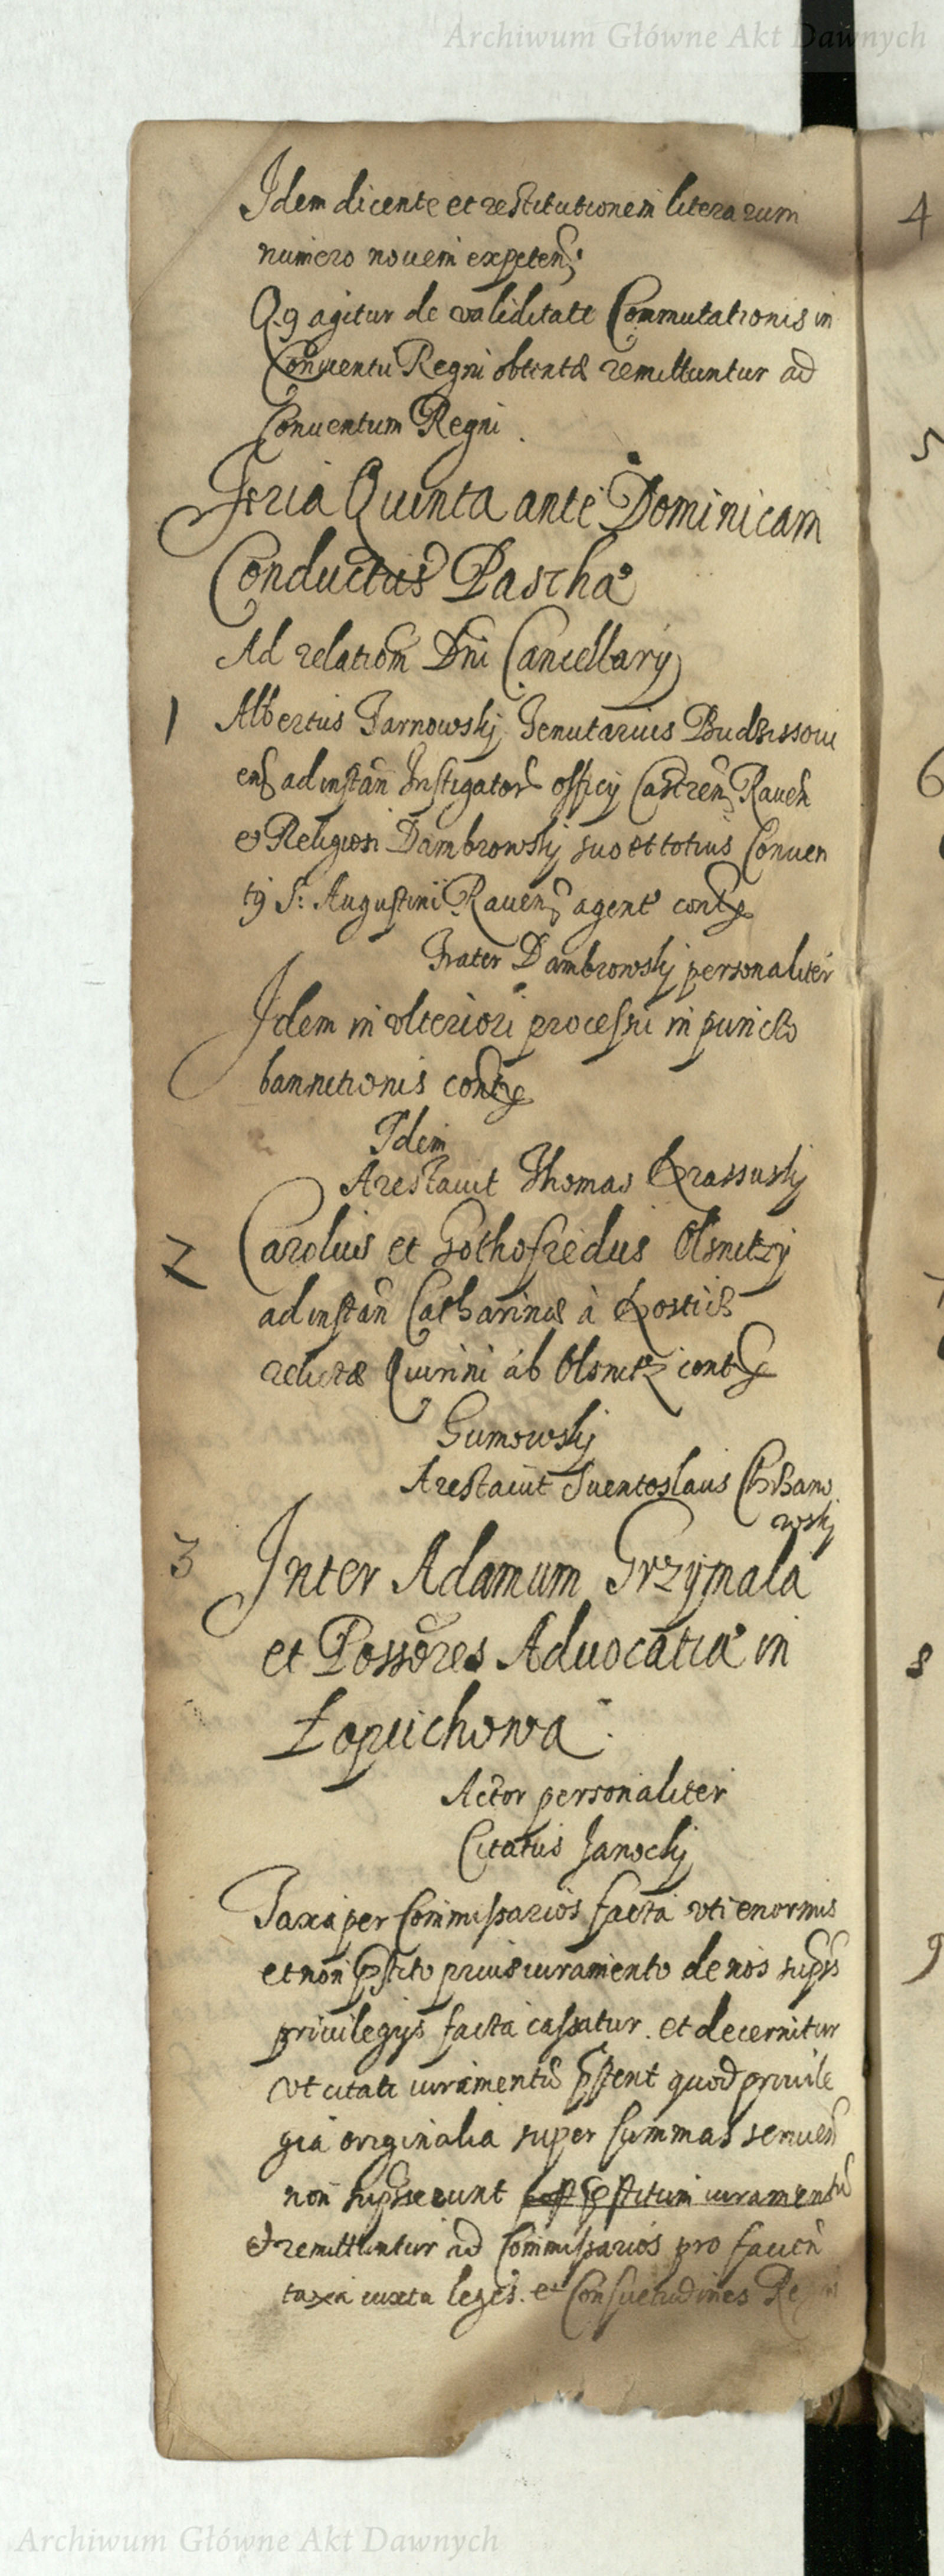 Archiwum Główne Akt Dawnych
Idem dicente et restitutionem literarum
numero novem expeten͂:
Q.9 agitur de validitate Commutationis in
Conventu Regni obtentæ remittuntur ad
Conventum Regni.
Feria Quinta ante Dominicam
Conductus Paschæ
Ad relatiom̃ Dni Cancellarij
1 Albertus Tarnowskj Tenutarius Budzissoui
enß ad instan͂ Instigator͂ officij Castren͂ Rauen͂
et Religiosi Dambrowskj suo et totius Conuen
t9 S: Augustini Rauen͂ agent͂ contẽ
Frater Dambrowskj personaliter
Idem in vlteriori processu in puncto
bannitionis contẽ
Idem
Arestauit Thomas Krassuskj
2 Carolus et Gothofredus Olsnitzy
ad instan͂ Catharinæ à Kostiis
relictæ Quirini ab Olsnitz contẽ
Gumowskj
Arestauit Suentoslaus Chrzano
wskj
3 Inter Adamum Grzymala
et Possores Aduocatiæ in
Łopuchowa
Actor personaliter
Citatus Janockj
Taxa per Commissarios facta vti enormis
et non pstito prius iuramento de nõs supss
privilegijs facta cassatur. et decernitur
vt citati iuramentũ pstent quod privile
gia originalia super summas seruen͂
non supsserunt post pstitum iuramentũ
et remittuntur ad Commissarios pro facien͂
taxa iuxta leges. et Consuetudines
4
5
6
8
9
Archiwum Główne Akt Dawnych